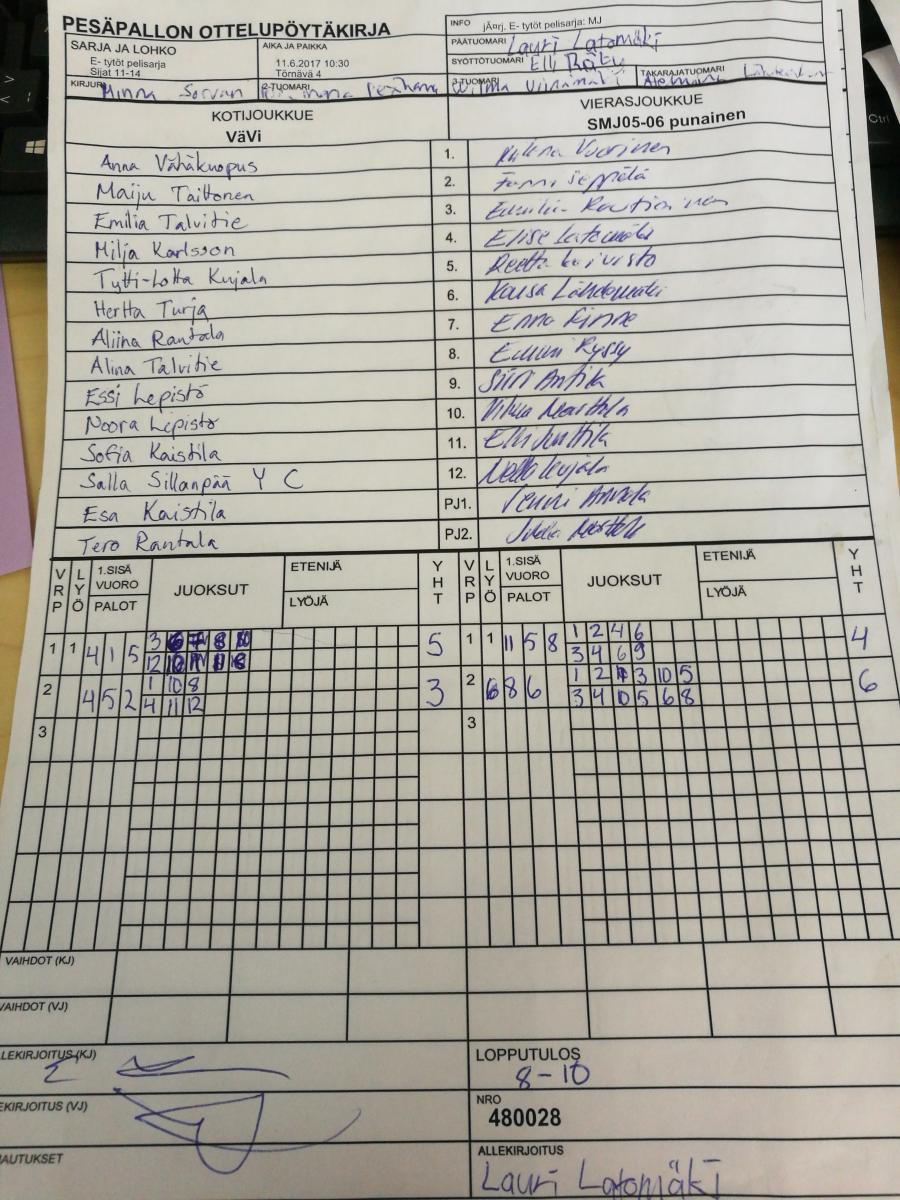 PESÄPALLON OTTELUPÖYTÄKIRJA
INFO jÄ¤rj. E- tytöt pelisarja: MJ
SARJA JA LOHKO
E- tytöt pelisarja
Sijat 11-14
AIKA JA PAIKKA
11.6.2017 10:30
Törnävä 4
PÄÄTUOMARI Lauri Latomäki
SYÖTTÖTUOMARI Elli Räty
KIRJURI Minna Sorvari
2-TUOMARI
3-TUOMARI Wilma
TAKARAJATUOMARI
KOTIJOUKKUE
VäVi
VIERASJOUKKUE
SMJ05-06 punainen
Anna Vähäkuopus 1. Vuorinen
Maiju Taittonen 2. Fanni Seppälä
Emilia Talvitie 3. Emilia Rautiainen
Milja Karlsson 4. Elise Latomäki
Tytti-Lotta Kujala 5. Reetta Koivisto
Hertta Turja 6. Kaisa Lähdemäki
Aliina Rantala 7. Enna Rinne
Alina Talvitie 8. Emmi Ryssy
Essi Lepistö 9. Siiri Antila
Noora Lepistö 10. Vilma Marttila
Sofia Kaistila 11. Elli Junttila
Salla Sillanpää Y C 12. Nella Kujala
Esa Kaistila PJ1. Annala
Tero Rantala PJ2. Marttila
VRP LYÖ 1.SISÄ VUORO PALOT JUOKSUT ETENIJÄ LYÖJÄ YHT VRP LYÖ 1.SISÄ VUORO PALOT JUOKSUT ETENIJÄ LYÖJÄ YHT
1 1 4 1 5 3 5 1 1 11 5 8 1 2 4 6 4
12 3 4 6 9
2 4 5 2 1 10 8 3 2 6 8 6 1 2 3 10 5 6
4 11 12 3 4 10 5 6 8
3 3
VAIHDOT (KJ)
VAIHDOT (VJ)
LEKIRJOITUS (KJ)
LOPPUTULOS
8-10
EKIRJOITUS (VJ)
NRO
480028
AUTUKSET
ALLEKIRJOITUS
Lauri Latomäki
Ctrl